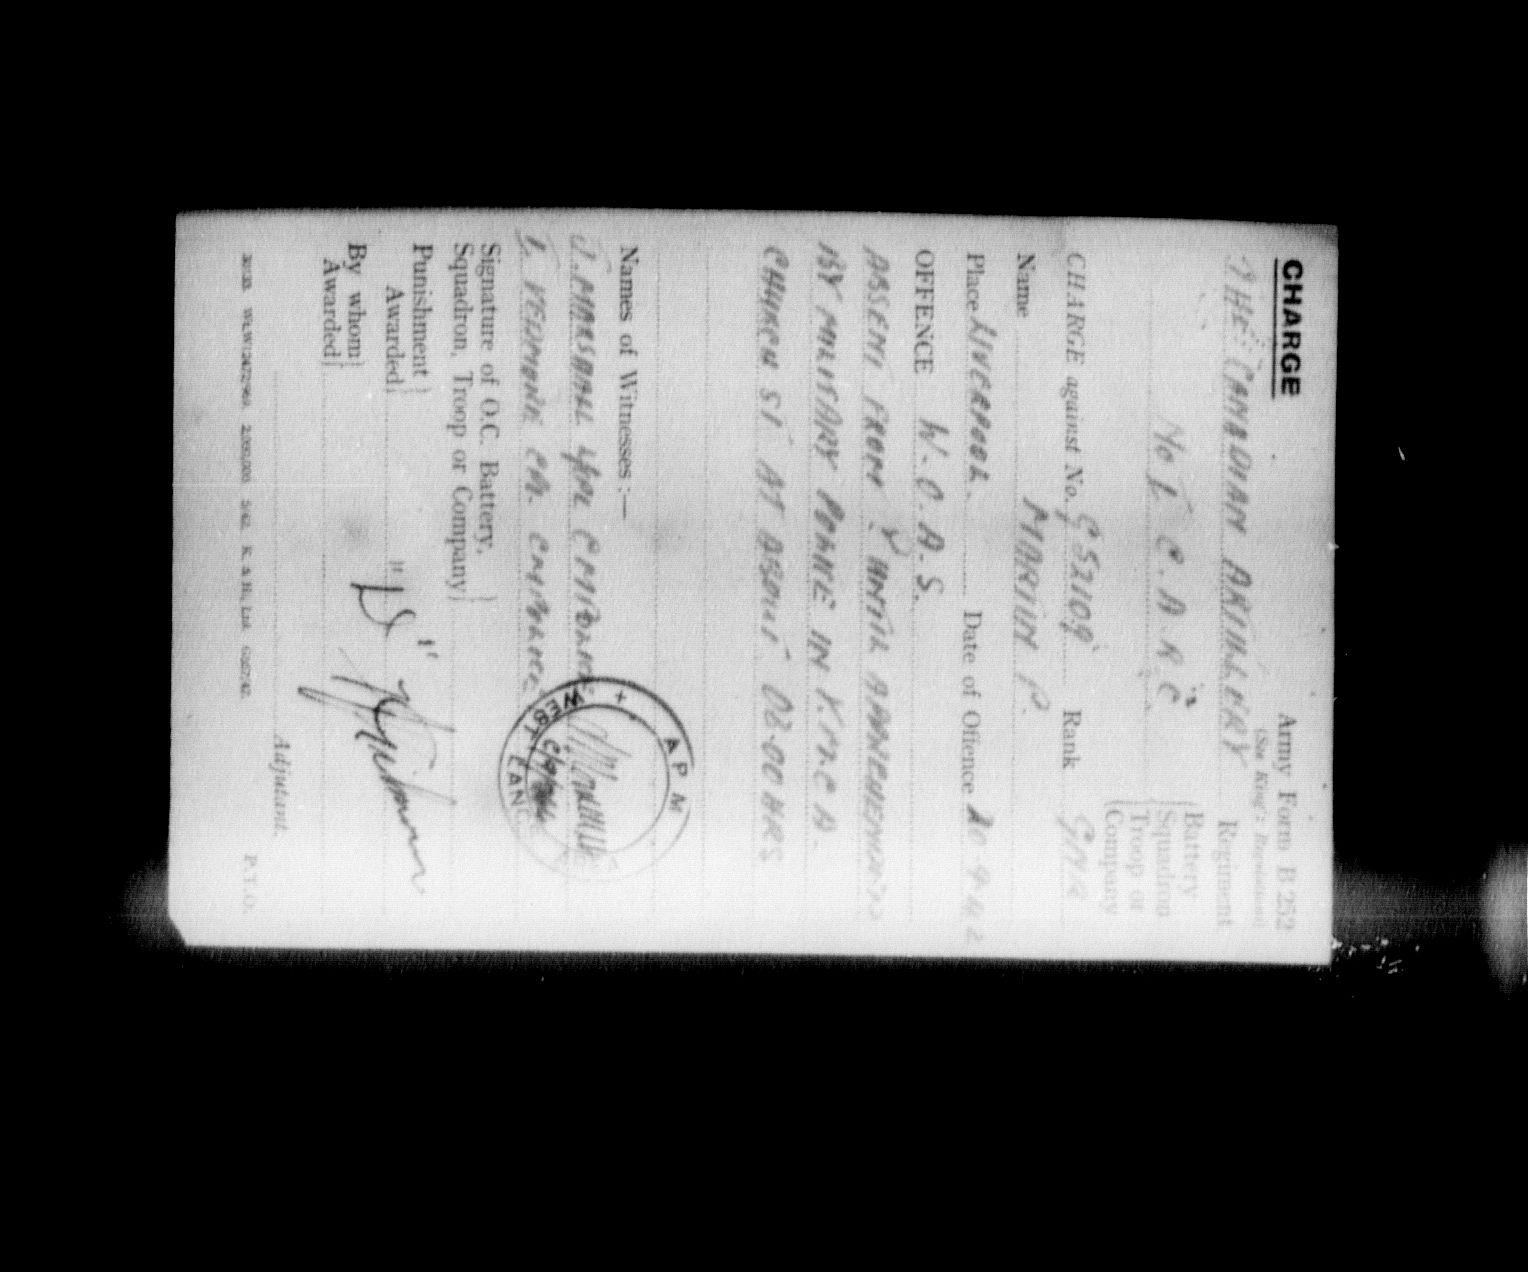 CHARGE
Army Form B 252
(See King's Regulations)
THE CANADIAN ARTILLERY Regiment
No 1 C.A.R.U
Battery
Squadron
Troop or
Company
CHARGE against No. C 52109 Rank GNR
Name MARIUM P.
Place LIVERPOOL. Date of Offence 20-9-42
OFFENCE W.O.A.S.
ABSENT FROM ? UNTIL APPREHENDED
BY MILITARY POLICE IN Y.M.C.A.
CHURCH ST AT ABOUT 02.00 HRS
Names of Witnesses :—
J. MARSHALL
Signature of O.C. Battery,
Squadron, Troop or Company
A P M
WEST LANCS
Punishment
Awarded
By whom
Awarded
Adjutant.
K. & H., Ltd.
P.T.O.